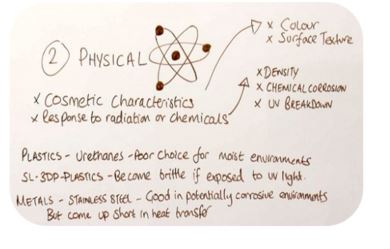 x Colour
x Surface Texture
② PHYSICAL
x DENSITY
x CHEMICAL CORROSION
x UV BREAKDOWN
x Cosmetic Characteristics
x Response to radiation or chemicals
PLASTICS - Urethanes - Poor Choice for moist environments
SL-3DP-PLASTICS - Become brittle if exposed to uv light.
METALS - STAINLESS STEEL - Good in potentially corrosive environments
But come up short in heat transfer